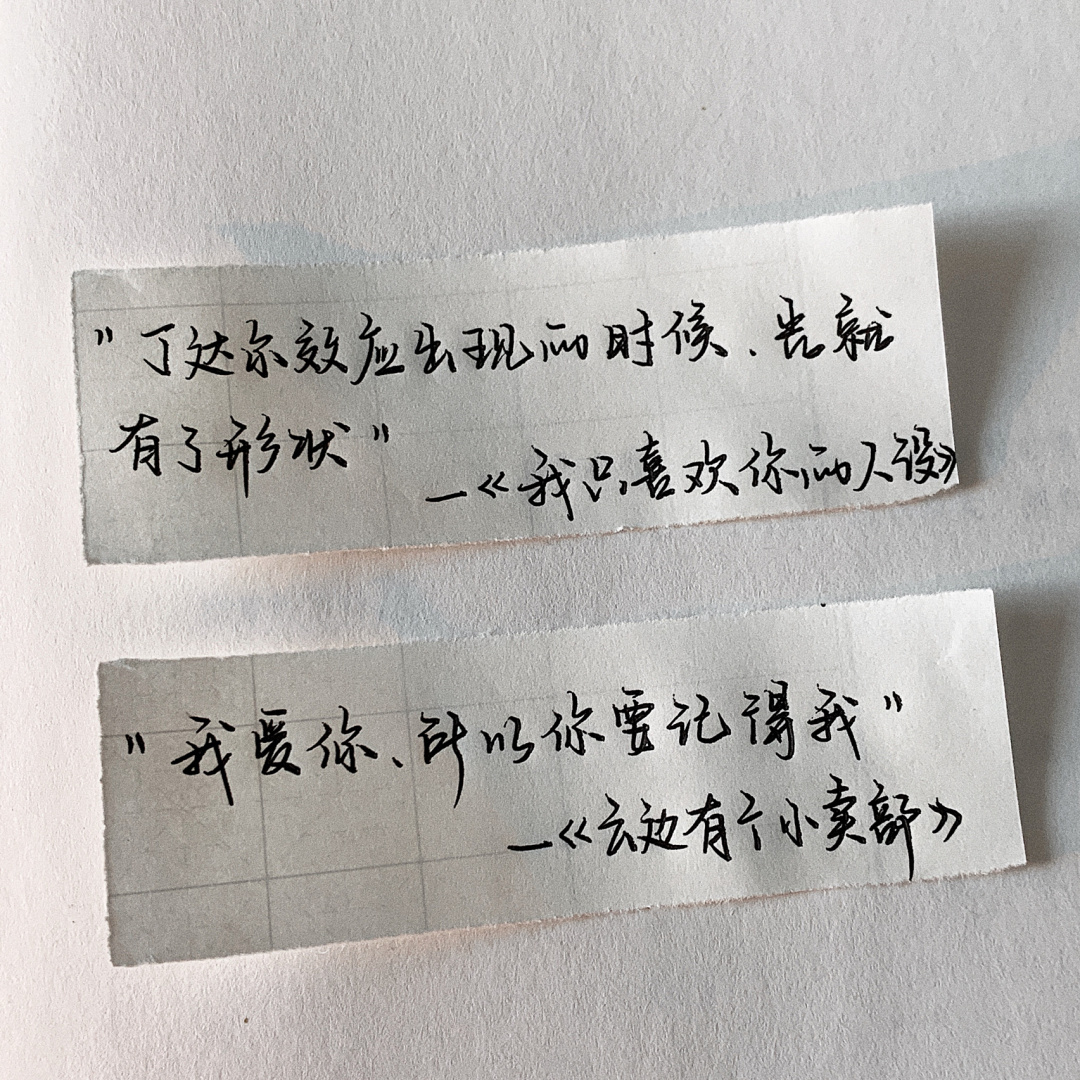 "丁达尔效应出现的时候、光就
有了形状"
—《我只喜欢你的人设》
"我爱你、所以你要记得我"
—《云边有个小卖部》